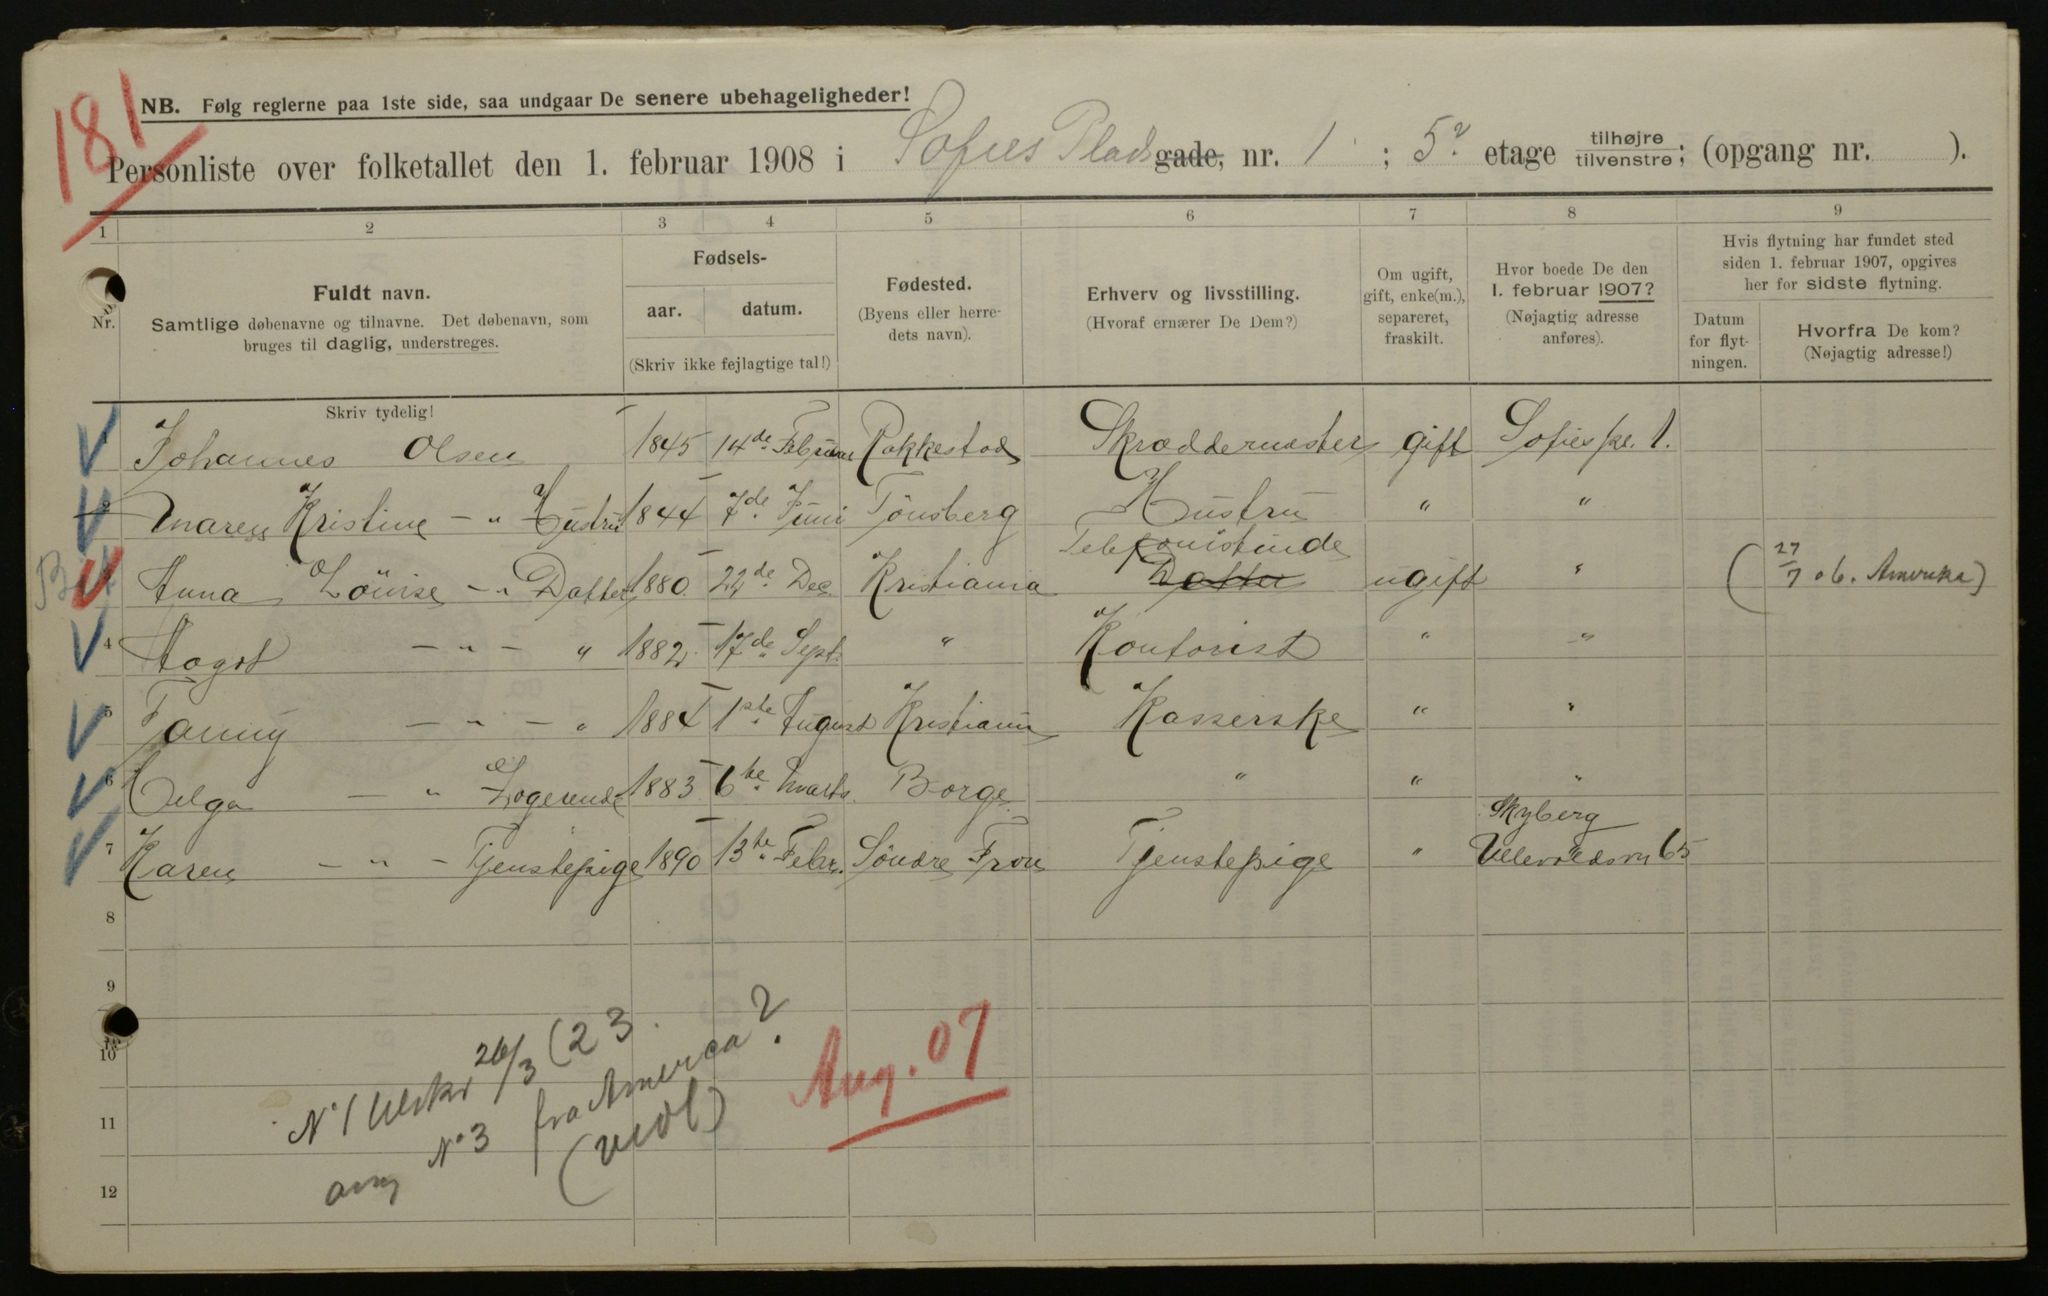 181
NB. Følg reglerne paa 1ste side, saa undgaar De senere ubehageligheder!
Personliste over folketallet den 1. februar 1908 i Sofies Plads gade, nr. 1 ; 5 etage tilhøjre tilvenstre; (opgang nr. ).
1 2 3 4 5 6 7 8 9
Nr.
Fuldt navn.
Samtlige døbenavne og tilnavne. Det døbenavn, som
bruges til daglig, understreges.
Skriv tydelig!
Fødsels-
aar. datum.
(Skriv ikke fejlagtige tal!)
Fødested.
(Byens eller herre-
dets navn).
Erhverv og livsstilling.
(Hvoraf ernærer De Dem?)
Om ugift,
gift, enke(m.),
separeret,
fraskilt.
Hvor boede De den
1. februar 1907?
(Nøjagtig adresse
anføres).
Hvis flytning har fundet sted
siden 1. februar 1907, opgives
her for sidste flytning.
Datum
for flyt-
ningen.
Hvorfra De kom?
(Nøjagtig adresse!)
1 Johannes Olsen 1845 14de Februar Rakkestad Skræddermester gift Sofies pl. 1.
2 Maren Kristine - " Hustru 1844 7de Juni Tönsberg Hustru " "
Telefonistinde
Anna Lovise - " Datter 1880 22de Dec. Kristiania Datter ugift " (27/7 06. Amerika)
4 Aagot - " - " 1882 17de Sept. " Kontorist " "
5 Fanny - " - " 1884 1ste August Kristiania Kasserske " "
6 Helga - " Logerende 1883 6te Marts. Borge " " "
Skyberg
7 Karen - " - Tjenstepige 1890 13te Febr. Söndre Fron Tjenstepige " Ullevoldsvn 65
8
9
10
11
12
N° 1 26/3 (23.
N° 3 fra America?
Aug. 07